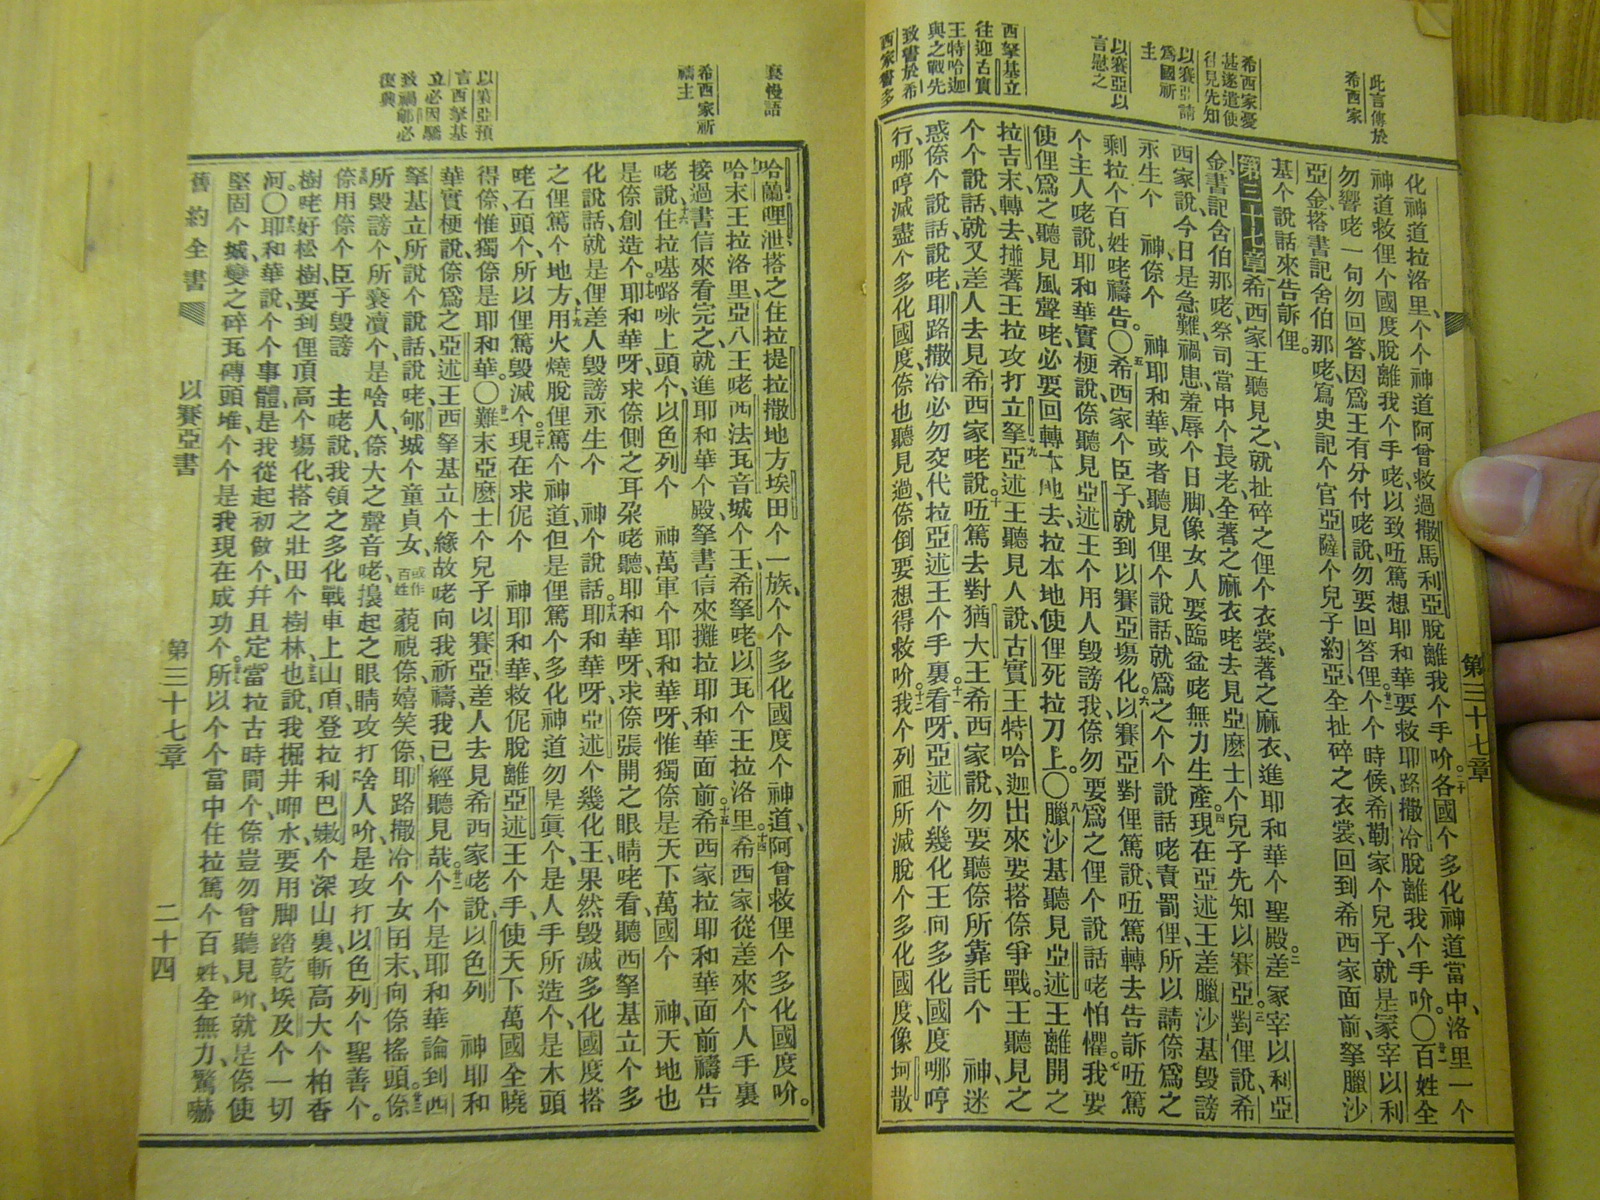 此言傳於
希西家
希西家憂
甚遂遣使
往見先知
以賽亞請
爲國祈
主
以賽亞以
言慰之
西拏基立
往迎古實
王特哈迦
與之戰先
致書於希
西家書多
第三十七章
化神道拉洛里、个个神道阿曾救過撒馬利亞脫離我个手吤。二十各國个多化神道當中、洛里一个
神道救俚个國度脫離我个手咾、以致㕶篤想耶和華要救耶路撒冷脫離我个手吤。〇百姓全
勿響咾一句勿回答、因爲王有分付咾說、勿要回答俚个个時候、希勒家个兒子、就是冢宰以利
亞金、搭書記舍伯那、咾寫史記个官亞薩个兒子約亞、全扯碎之衣裳、回到希西家面前、拏臘沙
基个說話來告訴俚。
第三十七章希西家王聽見之、就扯碎之俚个衣裳、著之麻衣、進耶和華个聖殿。二差冢宰以利亞
金、書記舍伯那咾祭司當中个長老、全著之麻衣咾去見亞麽士个兒子先知以賽亞。三對俚說、希
西家說、今日是急難、禍患、羞辱个日脚、像女人要臨盆咾無力生產。四現在亞述王差臘沙基毀謗
永生个　神、倷个　神耶和華或者聽見俚个說話、就爲之个个說話咾責罰俚、所以請倷爲之
剩拉个百姓咾禱告。〇五希西家个臣子、就到以賽亞塲化、六以賽亞對俚篤說、㕶篤轉去告訴㕶篤
个主人咾說、耶和華實梗說、倷聽見亞述王个用人毀謗我、倷勿要爲之俚个說話咾怕懼。七我要
使俚爲之聽見風聲咾、必要回轉本地去、拉本地使俚死拉刀上。〇八臘沙基聽見亞述王離開之
拉吉末、轉去、撞著王拉攻打立拏、九亞述王聽見人說、古實王特哈迦出來要搭倷爭戰。王聽見之
个个說話、就又差人去見希西家咾說、十㕶篤去對猶大王希西家說、勿要聽倷所靠託个　神、迷
惑倷个說話、說咾、耶路撒冷必勿交代拉亞述王个手裏。十一看呀、亞述个幾化王向多化國度哪哼
行、哪哼滅盡个多化國度、倷也聽見過、倷倒要想得救吤。十二我个列祖所滅脫个多化國度、像坷散
褻慢語
希西家祈
禱主
以賽亞預
言西拏基
立必因驕
致禍郇必
復興
哈蘭哩泄、搭之住拉提拉撒地方埃田个一族、个个多化國度个神道、阿曾救俚个多化國度吤。
哈末王拉洛里、亞八王咾、西法瓦音城个王、希拏咾以瓦个王拉洛里。十四希西家從差來个人手裏
接過書信來看完之、就進耶和華个殿、拏書信來攤拉耶和華面前。十五希西家拉耶和華面前禱告
咾說、十六住拉𠼻𠸄咏上頭个、以色列个　神、萬軍个耶和華呀、惟獨倷是天下萬國个　神、天地也
是倷創造个。耶和華呀、求倷側之耳朶咾聽、耶和華呀、求倷張開之眼睛咾看、聽西拏基立个多
化說話、就是俚差人毀謗永生个　神个說話。十八耶和華呀、亞述个幾化王、果然毀滅多化國度、搭
之俚篤个地方、十九用火燒脫俚篤个神道、但是俚篤个多化神道勿是眞个、是人手所造个、是木頭
咾石頭个、所以俚篤毀滅个。二十現在求伲个　神耶和華、救伲脫離亞述王个手、使天下萬國全曉
得倷惟獨倷是耶和華。〇難末亞麽士个兒子以賽亞、差人去見希西家咾說、以色列　神耶和
華實梗說、倷爲之亞述王西拏基立个緣故咾向我祈禱、我已經聽見哉。个个是耶和華論到西
拏基立所說个說話、說咾、郇城个童貞女、或作百姓藐視倷、嬉笑倷、耶路撒冷个女囝末、向倷搖頭。倷
所毀謗个、所褻瀆个是啥人、倷大之聲音咾、擡起之眼睛、攻打啥人吤、是攻打以色列个聖善个。
倷用倷个臣子毀謗　主咾說、我領之多化戰車上山頂、登拉利巴嫩个深山裏、斬高大个柏香
樹咾好松樹、要到俚頂高个塲化、搭之壯田个樹林也說、我掘井呷水、要用脚踏乾埃及个一切
河。〇耶和華說、个个事體是我從起初做个、幷且定當拉古時間个、倷豈勿曾聽見吤、就是倷使
堅固个城、變之碎瓦磚頭堆、个个是我現在成功个、所以个个當中住拉篤个百姓、全無力驚嚇
舊約全書
以賽亞書
第三十七章
二十四